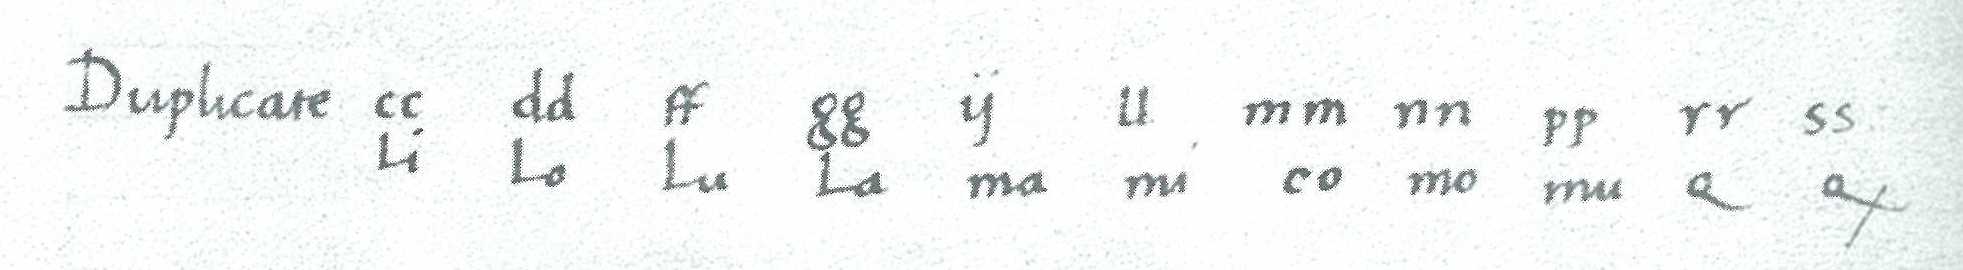 Duplicare cc dd ff gg ij ll mm nn pp rr ss
Li Lo Lu La ma mi co mo mu